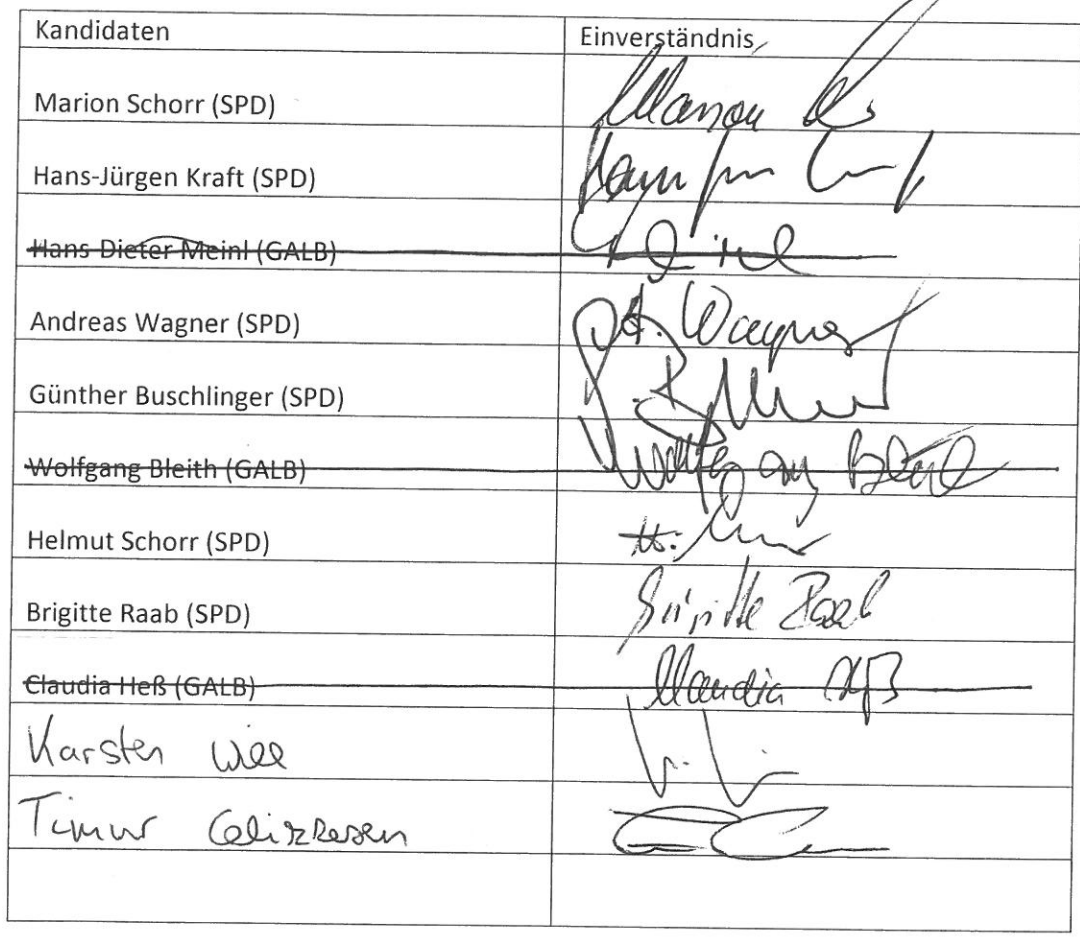 Kandidaten Einverständnis
Marion Schorr (SPD) Marion
Hans-Jürgen Kraft (SPD)
Hans Dieter Meinl (GALB)
Andreas Wagner (SPD) A. Wagner
Günther Buschlinger (SPD)
Wolfgang Bleith (GALB) Wolfgang
Helmut Schorr (SPD) H.
Brigitte Raab (SPD) Brigitte Raab
Claudia Heß (GALB) Claudia Heß
Karsten Will
Timur